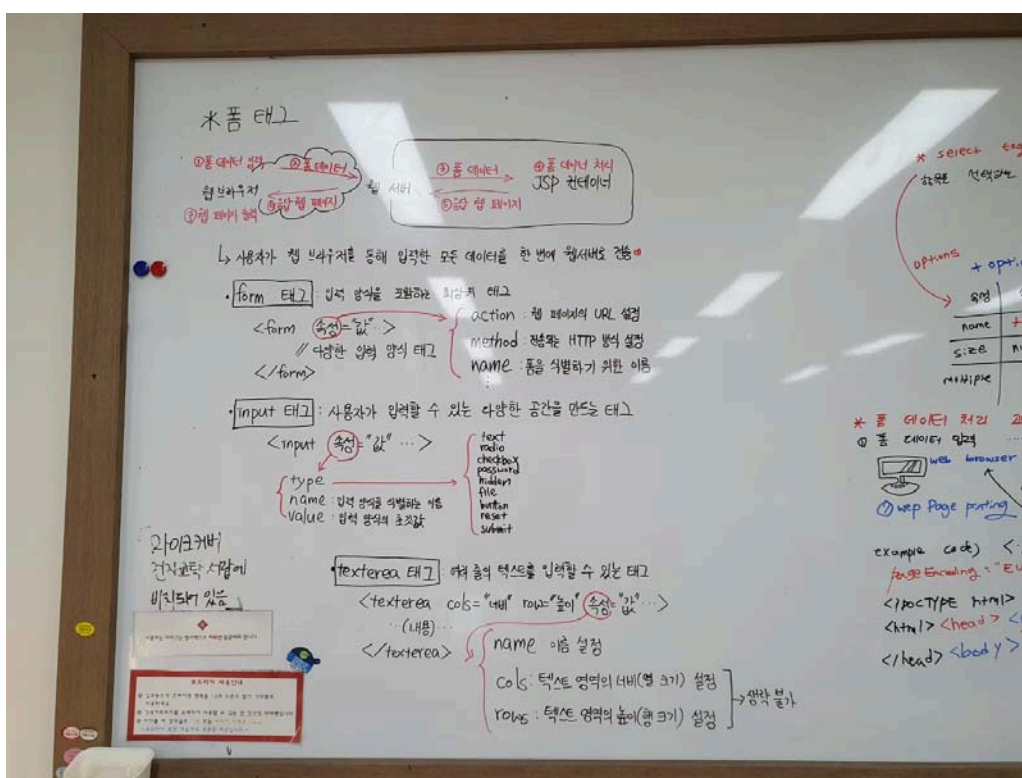 * 폼 태그
①폼 데이터 입력 ②폼 데이터
웹 브라우저
⑥응답 웹 페이지
⑦웹 페이지 출력
웹 서버
③ 폼 데이터
④ 폼 데이터 처리
JSP 컨테이너
⑤응답 웹 페이지
↳ 사용자가 웹 브라우저를 통해 입력한 모든 데이터를 한 번에 웹서버로 전송
• form 태그 : 입력 양식을 포함하는 최상위 태그
<form 속성="값" ··· >
// 다양한 입력 양식 태그
</form>
action : 웹 페이지의 URL 설정
method : 전송되는 HTTP 방식 설정
name : 폼을 식별하기 위한 이름
⋮
• input 태그 : 사용자가 입력할 수 있는 다양한 공간을 만드는 태그
<input 속성="값" ··· >
type
name : 입력 양식을 식별하는 이름
value : 입력 양식의 초깃값
text
radio
checkbox
password
hidden
file
button
reset
submit
• texterea 태그 : 여러 줄의 텍스트를 입력할 수 있는 태그
<texterea cols="너비" row="높이" 속성="값" ··· >
···(내용)···
</texterea>
name 이름 설정
cols : 텍스트 영역의 너비(열 크기) 설정
rows : 텍스트 영역의 높이(행 크기) 설정
→ 생략 불가
마이크커버
전자교탁 서랍에
비치되어 있음
보드마카 사용안내
* select tag
항목은 선택하는
options
+ opti
속성
name
size
multiple
* 폼 데이터 처리 과
① 폼 데이터 입력 ···
web browser
⑦ wep Page parting
example code) <
page Encoding = "EU
<!DOCTYPE html>
<html> <head> <
</head> <body>